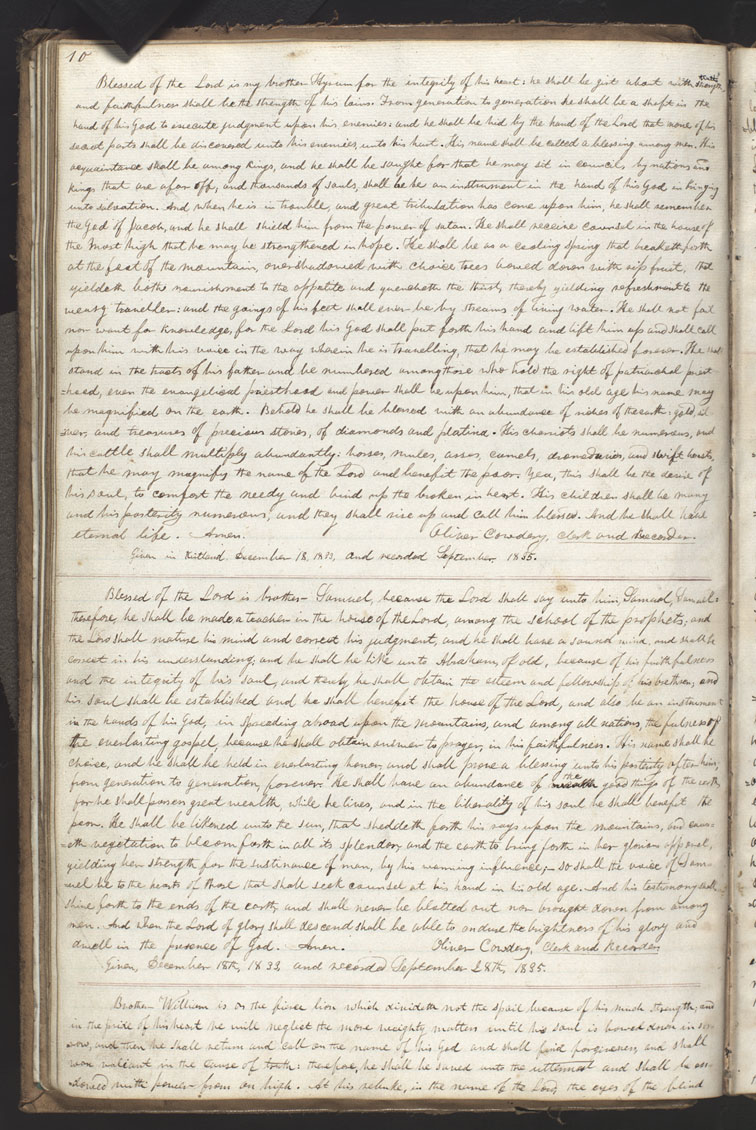 10
Blessed of the Lord is my brother Hyrum for the integrity of his heart: he shall be girt about with truth strength
and faithfulness shall be the strength of his loins: From generation to generation he shall be a shaft in the
hand of his God to execute judgment upon his enemies: and he shall be hid by the hand of the Lord that none of his
secret parts shall be discovered unto his enemies, unto his hurt. His name shall be called a blessing among men. His
acquaintance shall be among kings, and he shall be sought for that he may sit in councils, by nations and
kings that are afar off, and thousands of souls, shall be be an instrument in the hand of his God in bringing
unto salvation. And when he is in trouble, and great tribulation has come upon him, he shall remember
the God of Jacob, and he shall shield him from the power of satan. He shall receive counsel in the house of
the Most high that he may be strengthened in hope. He shall be as a cooling spring that breaketh forth
at the foot of the mountain, overshadowed with choice trees bowed down with ripe fruit, that
yieldeth both nourishment to the appetite and quencheth the thirst, thereby yielding refreshment to the
weary traveller: and the goings of his feet shall ever be by streams of living water. He shall not fail
nor want for knowledge, for the Lord his God shall put forth his hand and lift him up and shall call
upon him with his voice in the way wherein he is travelling, that he may be established forever. He shall
stand in the tracts of his father and be numbered among those who hold the right of patriarchal priest-
-hood, even the evangelical priesthood and power shall be upon him, that in his old age his name may
be magnified on the earth. Behold he shall be blessed with an abundance of riches of the earth: gold, sil-
-ver, and treasures of precious stones, of diamonds and platina. His chariots shall be numerous, and
his cattle shall multiply abundantly: horses, mules, asses, camels, dromedaries, and swift beasts,
that he may magnify the name of the Lord and benefit the poor. Yea, this shall be the desire of
his soul, to comfort the needy and bind up the broken in heart. His children shall be many
and his posterity numerous, and they shall rise up and call him blessed. And he shall have
eternal life. Amen. Oliver Cowdery, Clerk and Recorder.
Given in Kirtland, December 18, 1833, and recorded September, 1835.
Blessed of the Lord is brother Samuel, because the Lord shall say unto him, Samuel, Samuel:
therefore, he shall be made a teacher in the house of the Lord, among the school of the prophets, and
the Lord shall mature his mind and correct his judgment, and he shall have a sound mind, and shall be
correct in his understanding; and he shall be like unto Abraham, of old, because of his faithfulness
and the integrity of his soul, and thereby he shall obtain the esteem and fellowship of his brethren, and
his soul shall be established and he shall benefit the house of the Lord, and also be an instrument
in the hands of his God, in spreading abroad upon the mountains, and among all nations, the fulness of
the everlasting gospel, because he shall obtain answer to prayer, in his faithfulness. His name shall be
choice, and he shall be held in everlasting honor, and shall prove a blessing unto his posterity after him,
from generation to generation, forever. He shall have an abundance of the good things of the earth,
for he shall possess great wealth, while he lives, and in the liberality of his soul he shall benefit the
poor. He shall be likened unto the sun, that sheddeth forth his rays upon the mountains, and caus-
-eth vegetation to bloom forth in all its splendor, and the earth to bring forth in her glorious apparel,
yielding her strength for the sustinance of man, by his warming influence,— so shall the voice of Sam-
uel be to the hearts of those that shall seek counsel at his hand in his old age. And his testimony shall
shine forth to the ends of the earth, and shall never be blotted out nor brought down from among
men. And when the Lord of glory shall descend shall be able to endure the brightness of his glory and
dwell in the presence of God. Amen. Oliver Cowdery, Clerk and Recorder
Given, December 18th, 1833, and recorded September 28th, 1835.
Brother William is as the fierce lion which divideth not the spoil because of his much strength; and
in the pride of his heart he will neglect the more weighty matters until his soul is bowed down in sor-
row, and then he shall return and call on the name of his God and shall find forgiveness, and shall
wax valiant in the cause of truth: therefore, he shall be saved unto the uttermost and shall be en-
-dowed with power from on high. At his rebuke, in the name of the Lord, the eyes of the blind